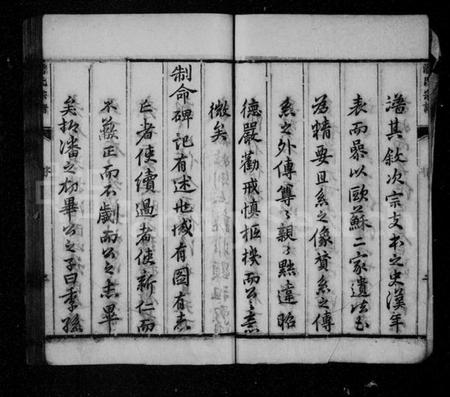 譜其敘次宗支本之史漢年
表而叅以歐蘇二家遺法至
為精要且系之像賛系之傳
系之外傳尊〻親〻黜違昭
德嚴勸戒慎樞機而公意
微矣
制命碑記有述也域有圖有志
亡者使續過者使新仁而
不蔽正而不劌而公之志畢
矣抑潘之初畢公之子曰季孫